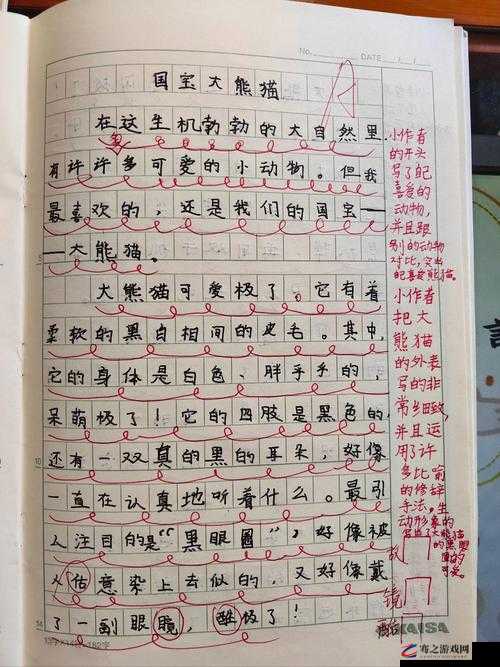 No.
DATE
国宝大熊猫
A
在这生机勃勃的大自然里
有许许多可爱的小动物。但我
最喜欢的,还是我们的国宝一
一大熊猫。
大熊猫可爱极了。它有着
柔软的黑白相间的皮毛。其中,
它的身体是白色、胖乎乎的,
呆萌极了!它的四肢是黑色的,
还有一双真的黑的耳朵,好像
一直在认真地听着什么。最引
人注目的是“黑眼圈”,好像被
人估意染上去似的,又好像戴
了一副眼镜,酷极了!
小作者
的开头
写了自己
喜爱的
动物,
并且跟
别的动物
对比,突出
自己喜爱熊猫。
小作者
把大
熊猫
的外表
写的非
常细致,
并且运
用了许
多比喻
的修辞
手法,生
动形象的
写出了大熊猫
的黑眼
圈的
可爱。
故
镜
5
10
KAISA
骞之游戏网